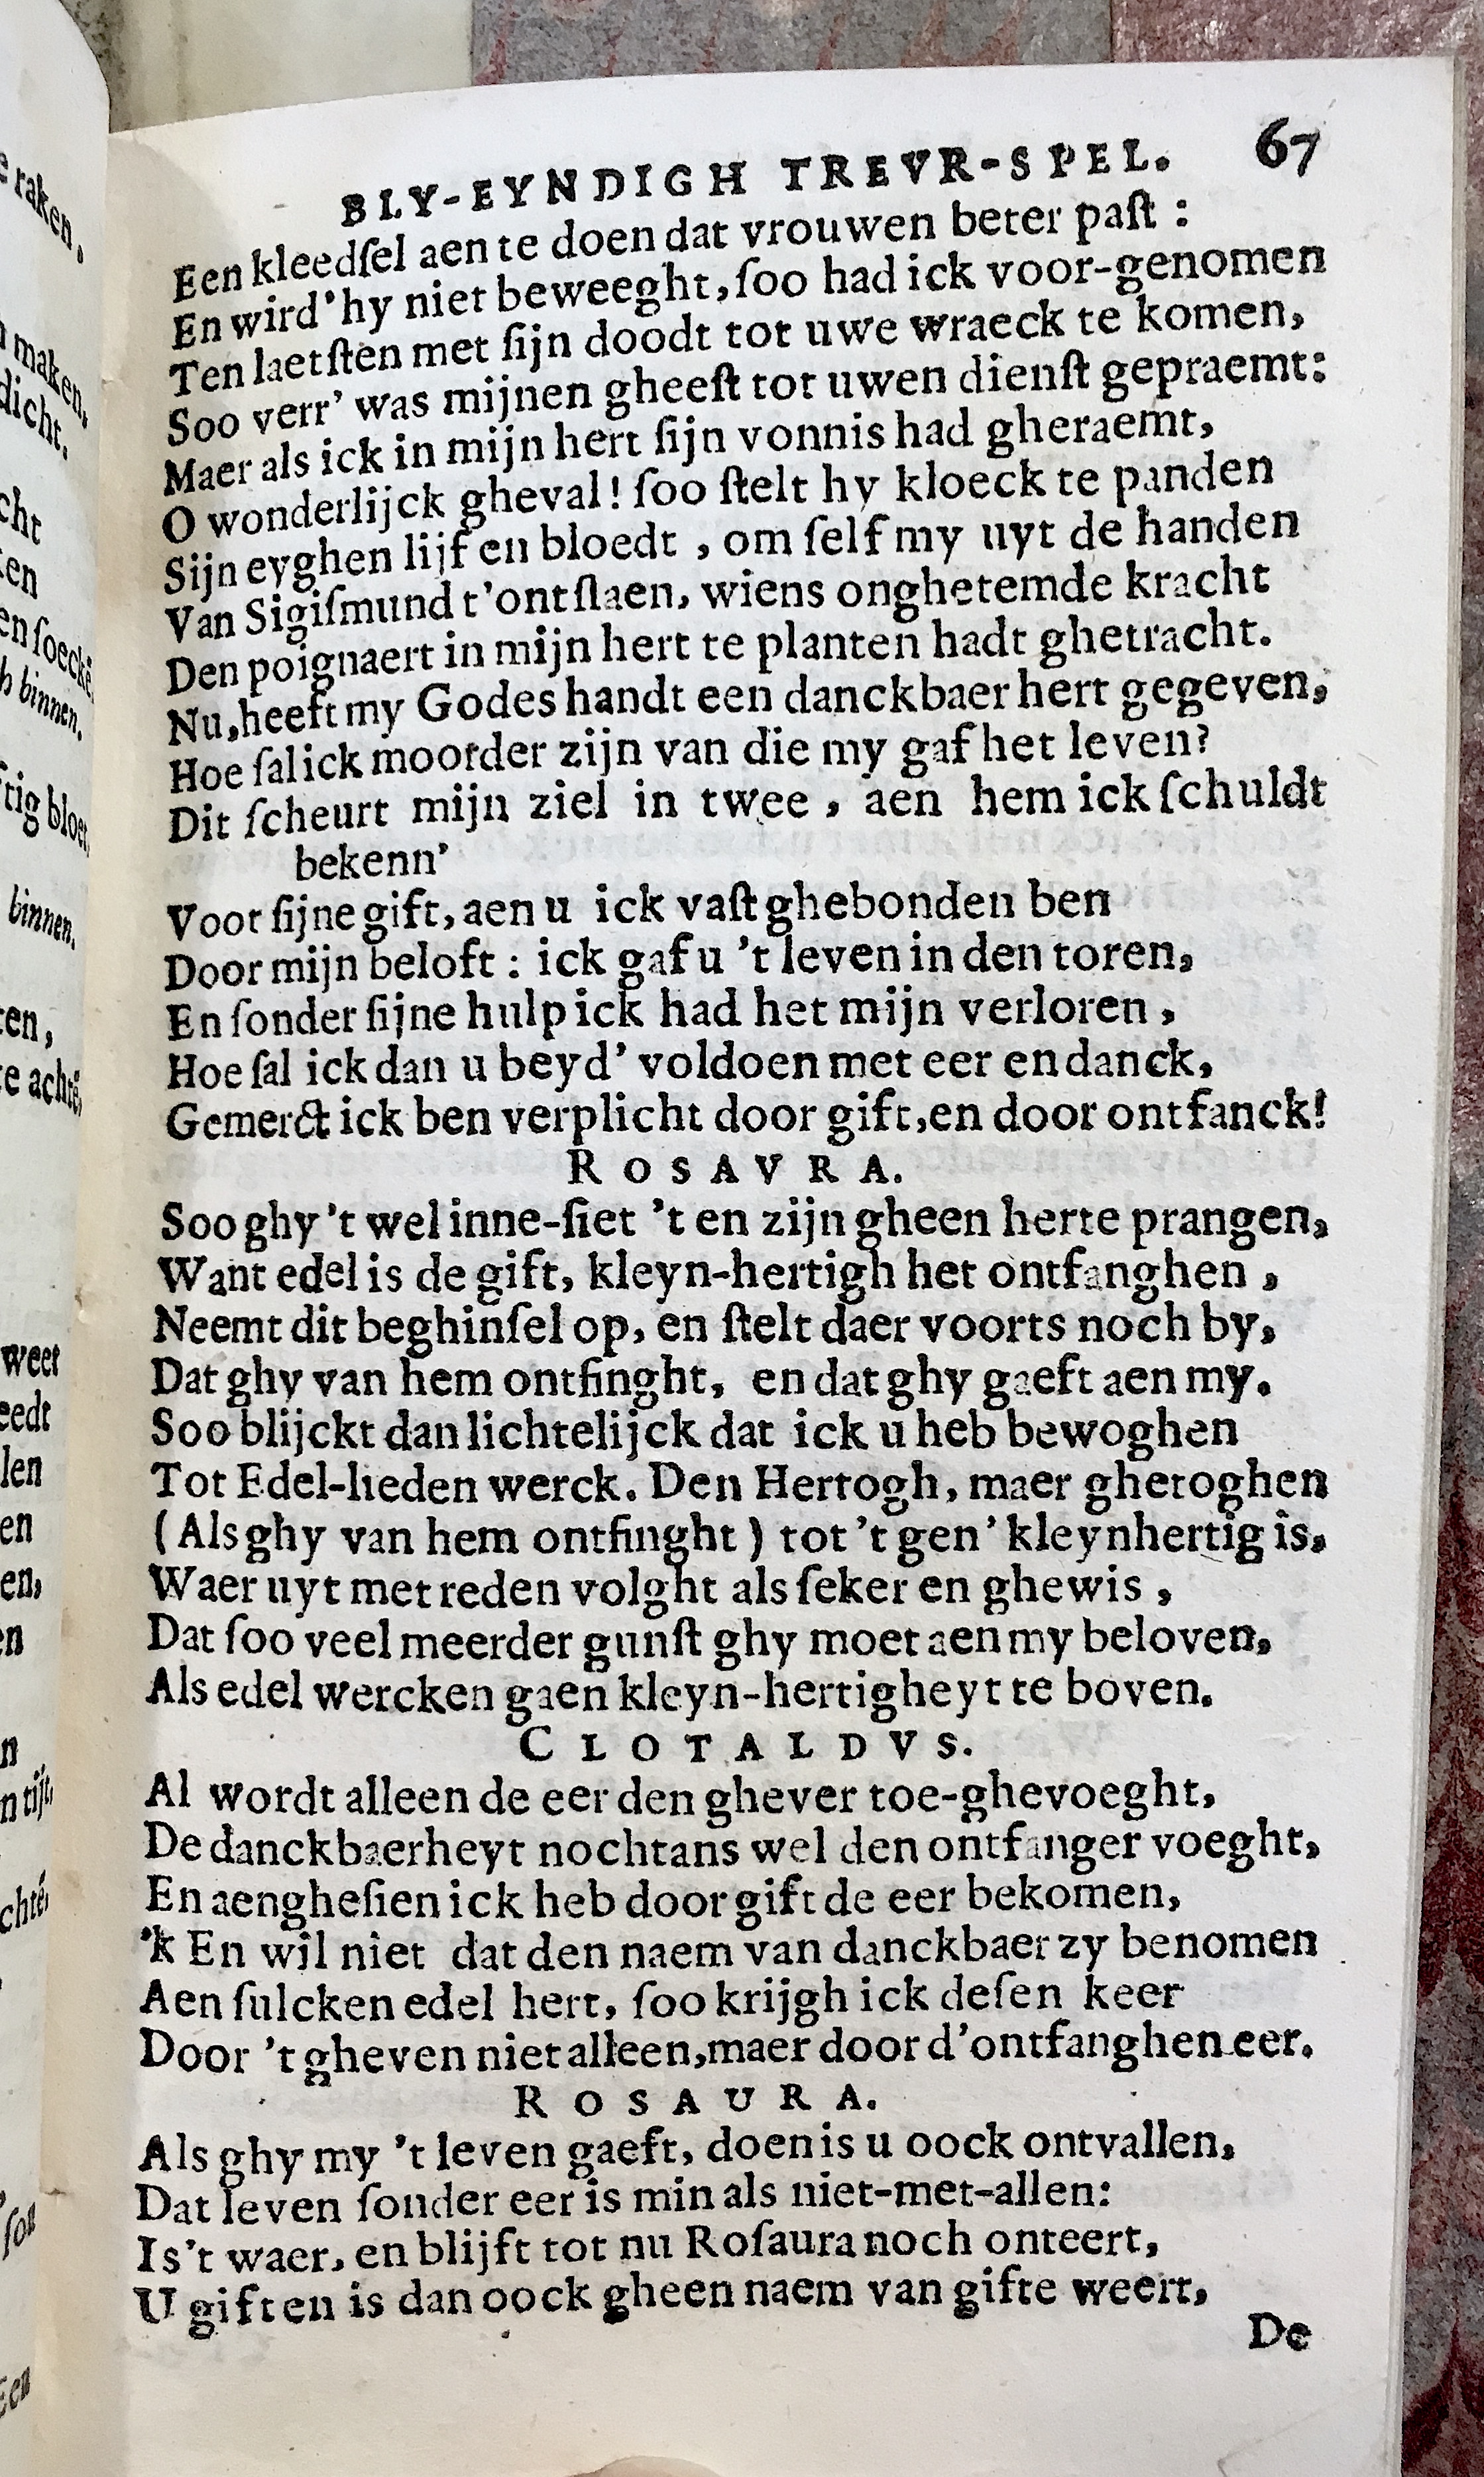 BLY-EYNDIGH TREVR-SPEL. 67
Een kleedſel aen te doen dat vrouwen beter paſt :
En wird' hy niet beweeght, ſoo had ick voor-genomen
Ten laetſten met ſijn doodt tot uwe wraeck te komen,
Soo verr' was mijnen gheeſt tot uwen dienſt gepraemt:
Maer als ick in mijn hert ſijn vonnis had gheraemt,
O wonderlijck gheval! ſoo ſtelt hy kloeck te panden
Sijn eyghen lijf en bloedt , om ſelf my uyt de handen
Van Sigiſmund t'ontſlaen, wiens onghetemde kracht
Den poignaert in mijn hert te planten hadt ghetracht.
Nu,heeft my Godes handt een danckbaer hert gegeven,
Hoe ſal ick moorder zijn van die my gaf het leven?
Dit ſcheurt mijn ziel in twee , aen hem ick ſchuldt
bekenn'
Voor ſijne gift, aen u ick vaſt ghebonden ben
Door mijn beloft : ick gaf u 't leven in den toren,
En ſonder ſijne hulp ick had het mijn verloren ,
Hoe ſal ick dan u beyd' voldoen met eer en danck,
Gemerct ick ben verplicht door gift,en door ontfanck!
ROSAVRA.
Soo ghy 't wel inne-ſiet 't en zijn gheen herte prangen,
Want edel is de gift, kleyn-hertigh het ontfanghen ,
Neemt dit beghinſel op, en ſtelt daer voorts noch by,
Dat ghy van hem ontfinght, en dat ghy gaeft aen my.
Soo blijckt dan lichtelijck dat ick u heb bewoghen
Tot Edel-lieden werck. Den Hertogh, maer ghetoghen
(Als ghy van hem ontfinght) tot 't gen' kleynhertig is,
Waer uyt met reden volght als ſeker en ghewis ,
Dat ſoo veel meerder gunſt ghy moet aen my beloven,
Als edel wercken gaen kleyn-hertigheyt te boven.
CLOTALDVS.
Al wordt alleen de eer den ghever toe-ghevoeght,
De danckbaerheyt nochtans wel den ontfanger voeght,
En aengheſien ick heb door gift de eer bekomen,
'k En wil niet dat den naem van danckbaer zy benomen
Aen ſulcken edel hert, ſoo krijgh ick deſen keer
Door 't gheven niet alleen,maer door d'ontfanghen eer.
ROSAURA.
Als ghy my 't leven gaeft, doen is u oock ontvallen,
Dat leven ſonder eer is min als niet-met-allen:
Is't waer, en blijft tot nu Roſaura noch onteert,
U giften is dan oock gheen naem van gifte weert,
De